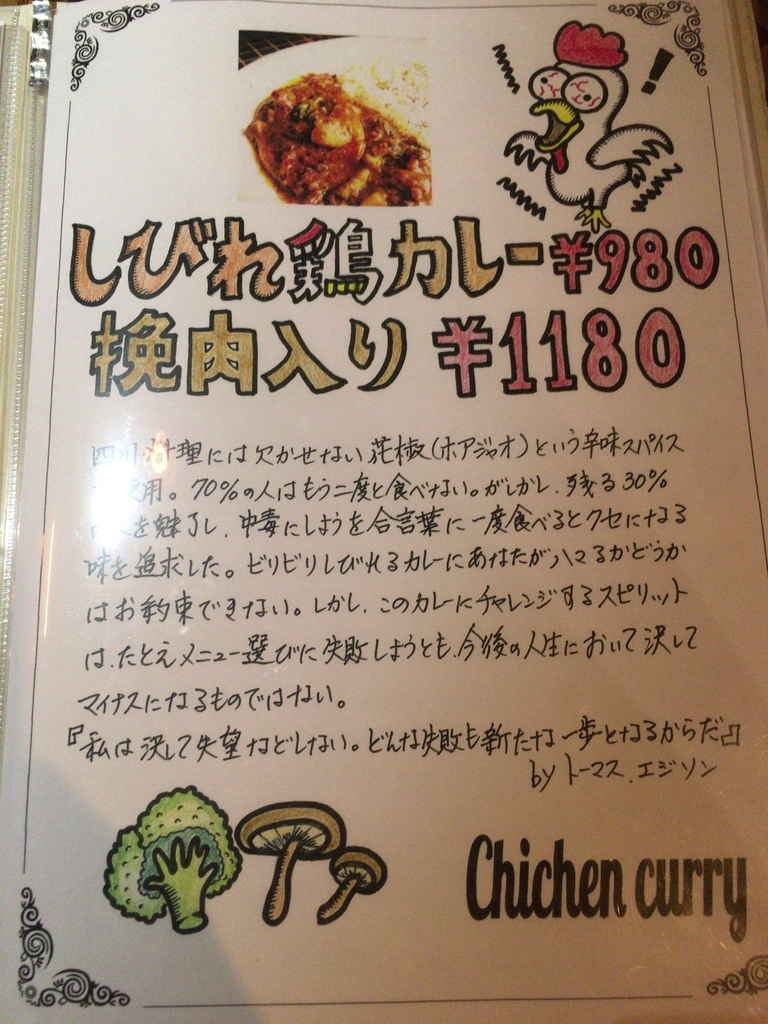 !
しびれ鶏カレー ¥980
挽肉入り ¥1180
四川料理には欠かせない花椒(ホアジャオ)という辛味スパイス
使用。70%の人はもう二度と食べない。がしかし、残る30%
人を魅了し、中毒にしようを合言葉に一度食べるとクセになる
味を追求した。ビリビリしびれるカレーにあなたがハマるかどうか
はお約束できない。しかし、このカレーにチャレンジするスピリット
は、たとえメニュー選びに失敗しようとも、今後の人生において決して
マイナスになるものではない。
『私は決して失望などしない。どんな失敗も新たな一歩となるからだ』
by トーマス、エジソン
Chichen curry